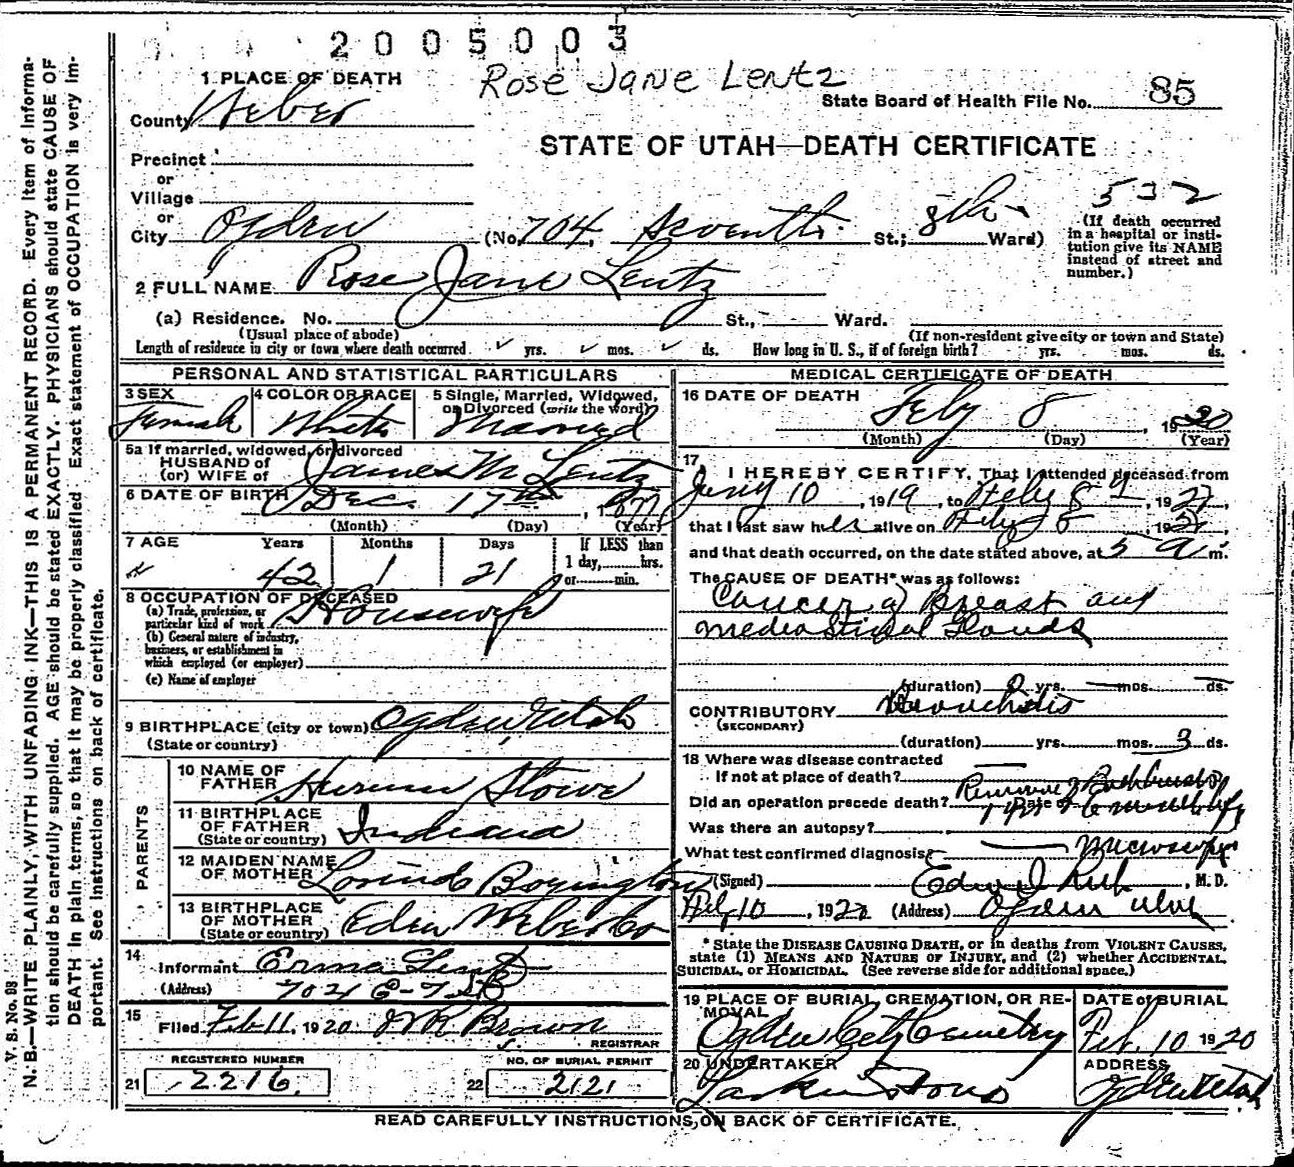 2005003
Rose Jane Lentz
1 PLACE OF DEATH
State Board of Health File No. 85
County Weber
STATE OF UTAH—DEATH CERTIFICATE
Precinct
or
Village
or
City Ogden (No. 704, Seventh St.; 8th Ward)
532
(If death occurred
in a hospital or insti-
tution give its NAME
instead of street and
number.)
2 FULL NAME Rose Jane Lentz
(a) Residence. No. St., Ward.
(Usual place of abode) (If non-resident give city or town and State)
Length of residence in city or town where death occurred yrs. mos. ds. How long in U. S., if of foreign birth? yrs. mos. ds.
PERSONAL AND STATISTICAL PARTICULARS
3 SEX
Female
4 COLOR OR RACE
White
5 Single, Married, Widowed,
or Divorced (write the word)
Married
5a If married, widowed, or divorced
HUSBAND of
(or) WIFE of James M Lentz
6 DATE OF BIRTH Dec. 17th, 1877
(Month) (Day) (Year)
7 AGE Years Months Days If LESS than
1 day, hrs.
or min.
42 1 21
8 OCCUPATION OF DECEASED
(a) Trade, profession, or
particular kind of work Housewife
(b) General nature of industry,
business, or establishment in
which employed (or employer)
(c) Name of employer
9 BIRTHPLACE (city or town) Ogden, Utah
(State or country)
PARENTS
10 NAME OF
FATHER Hiram Stowe
11 BIRTHPLACE
OF FATHER
(State or country) Indiana
12 MAIDEN NAME
OF MOTHER Lorinda Boyington
13 BIRTHPLACE
OF MOTHER
(State or country) Eden Weber Co
14
Informant Erma Lentz
(Address) 704 E-7 St
15
Filed Feb 11, 1920 Brown
REGISTRAR
REGISTERED NUMBER
21 2216.
NO. OF BURIAL PERMIT
22 2121
MEDICAL CERTIFICATE OF DEATH
16 DATE OF DEATH
Feby 8, 1920
(Month) (Day) (Year)
17
I HEREBY CERTIFY, That I attended deceased from
10, 1919, to Feby 8, 19
that I last saw her alive on Feby 8 19
and that death occurred, on the date stated above, at 5 a m.
The CAUSE OF DEATH* was as follows:
Cancer of Breast and
Mediastinal Glands
(duration) yrs. mos. ds.
CONTRIBUTORY Bronchitis
(SECONDARY)
(duration) yrs. mos. 3 ds.
18 Where was disease contracted
If not at place of death?
Did an operation precede death? Removal of Date of
Was there an autopsy?
What test confirmed diagnosis? Microscope
(Signed) , M. D.
Feby 10, 1920 (Address) Ogden Utah
* State the DISEASE CAUSING DEATH, or in deaths from VIOLENT CAUSES,
state (1) MEANS AND NATURE OF INJURY, and (2) whether ACCIDENTAL,
SUICIDAL, or HOMICIDAL. (See reverse side for additional space.)
19 PLACE OF BURIAL, CREMATION, OR RE-
MOVAL
Ogden City Cemetery
DATE of BURIAL
Feb. 10 1920
20 UNDERTAKER
Larkin & Sons
ADDRESS
Ogden Utah
READ CAREFULLY INSTRUCTIONS, ON BACK OF CERTIFICATE.
V. S. No. 98
N. B.—WRITE PLAINLY, WITH UNFADING INK—THIS IS A PERMANENT RECORD. Every item of informa-
tion should be carefully supplied. AGE should be stated EXACTLY. PHYSICIANS should state CAUSE OF
DEATH in plain terms, so that it may be properly classified. Exact statement of OCCUPATION is very im-
portant. See instructions on back of certificate.